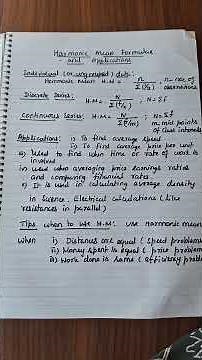 Harmonic Mean Formulae
and Applications
Individual (or ungrouped) data:
Harmonic Mean H.M = n / Σ(1/x) n = no. of observations
Discrete Series: H.M = N / Σ(f/x) ; N = Σf
Continuous Series: H.M = N / Σ(f/m) ; N = Σf
m = mid points of class intervals
Applications: i) To find average speed
ii) To find average price per unit
iii) Used to find when time or rate of work is
involved
iv) used when averaging price earnings ratios
and comparing financial rates.
v) It is used in calculating average density
in Science, Electrical calculations (like
resistances in parallel)
Tips when to use H.M: use Harmonic mean
when i) Distances are equal (speed problems
ii) Money spent is equal (price problem
iii) Work done is same (efficiency proble